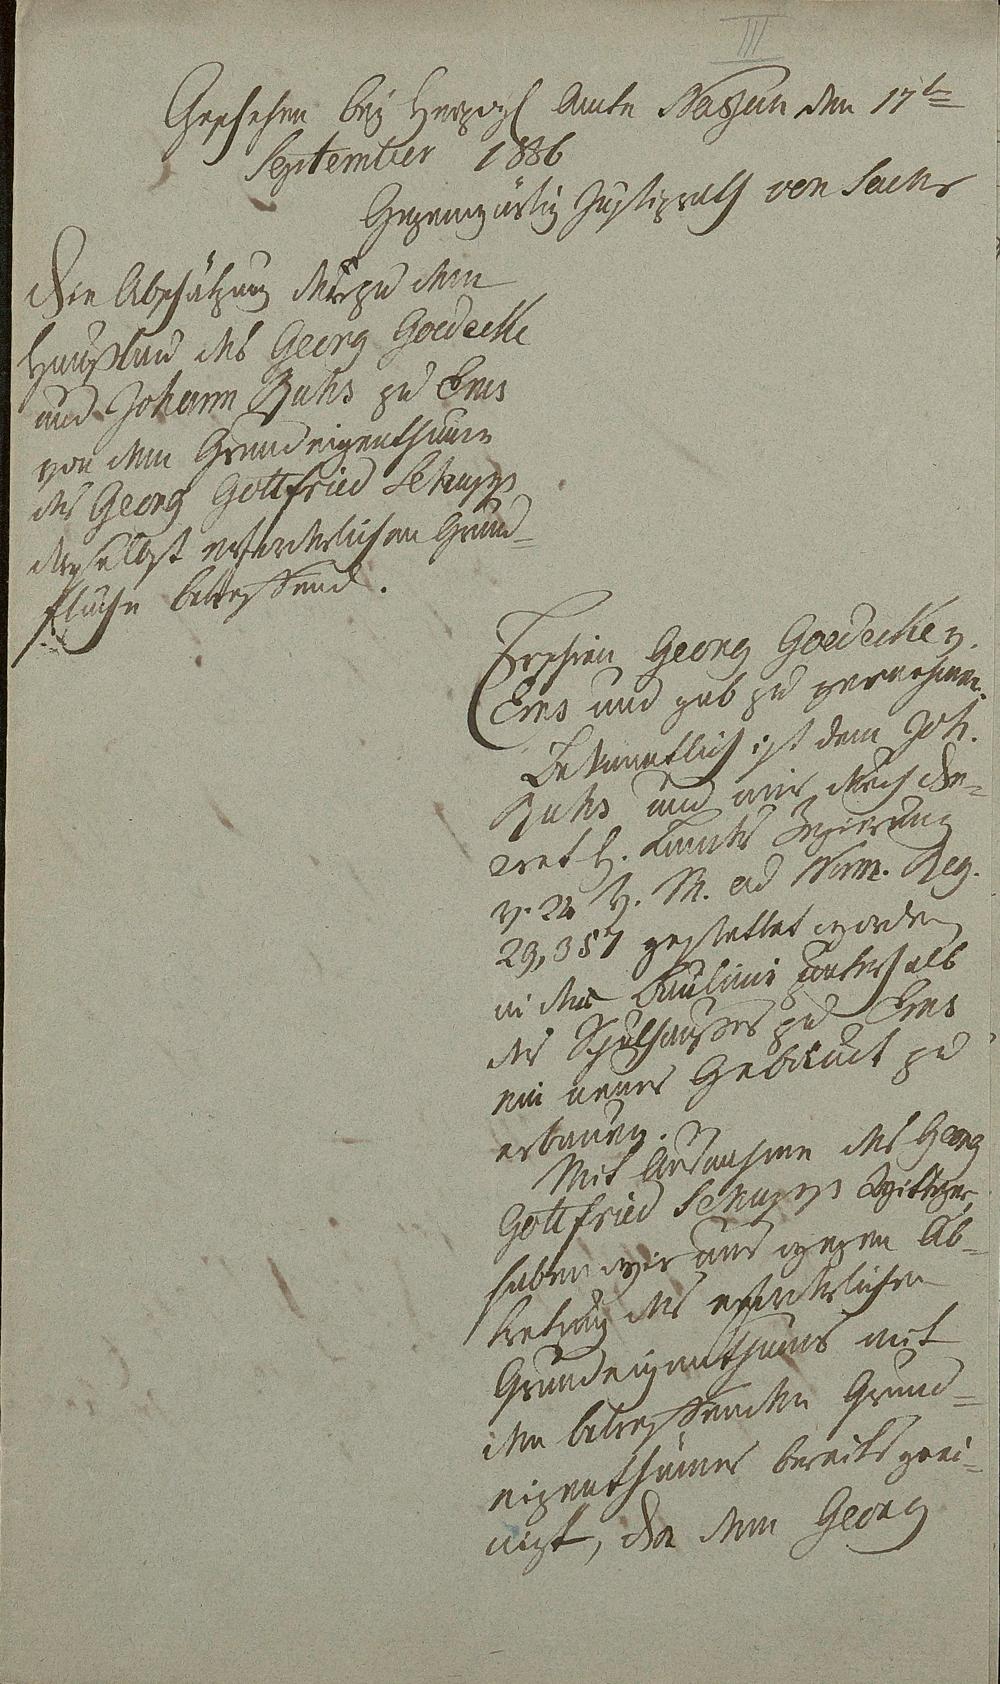 III
Geschehen bei Herzogl Amte Nassau den 17ten
September 1836
Gegenwärtig Justizrath von Sachs
Die Abschätzung der zu dem
Hausbau des Georg Goedecke
und Johann Bahs zu Ems
von dem Grundeigenthum
des Georg Gottfried Schupp
daselbst erforderlichen Grund-
fläche betreffend.
Erschien Georg Goedecke v.
Ems und gab zu vernehmen.
Bekanntlich ist dem Joh.
Bahs und mir durch De-
cret H. Landes Regierung
v. 24 v. M. ad Num. Reg.
29,357 gestattet worden
in der Baulinie unterhalb
des Schulhauses zu Ems
ein neues Gebäude zu
erbauen.
Mit Ausnahme des Georg
Gottfried Schupps Wittwe,
haben wir uns wegen Ab-
tretung des erforderlichen
Grundeigenthums mit
den betreffenden Grund-
eigenthümer bereits geei-
nigt, die dem Georg